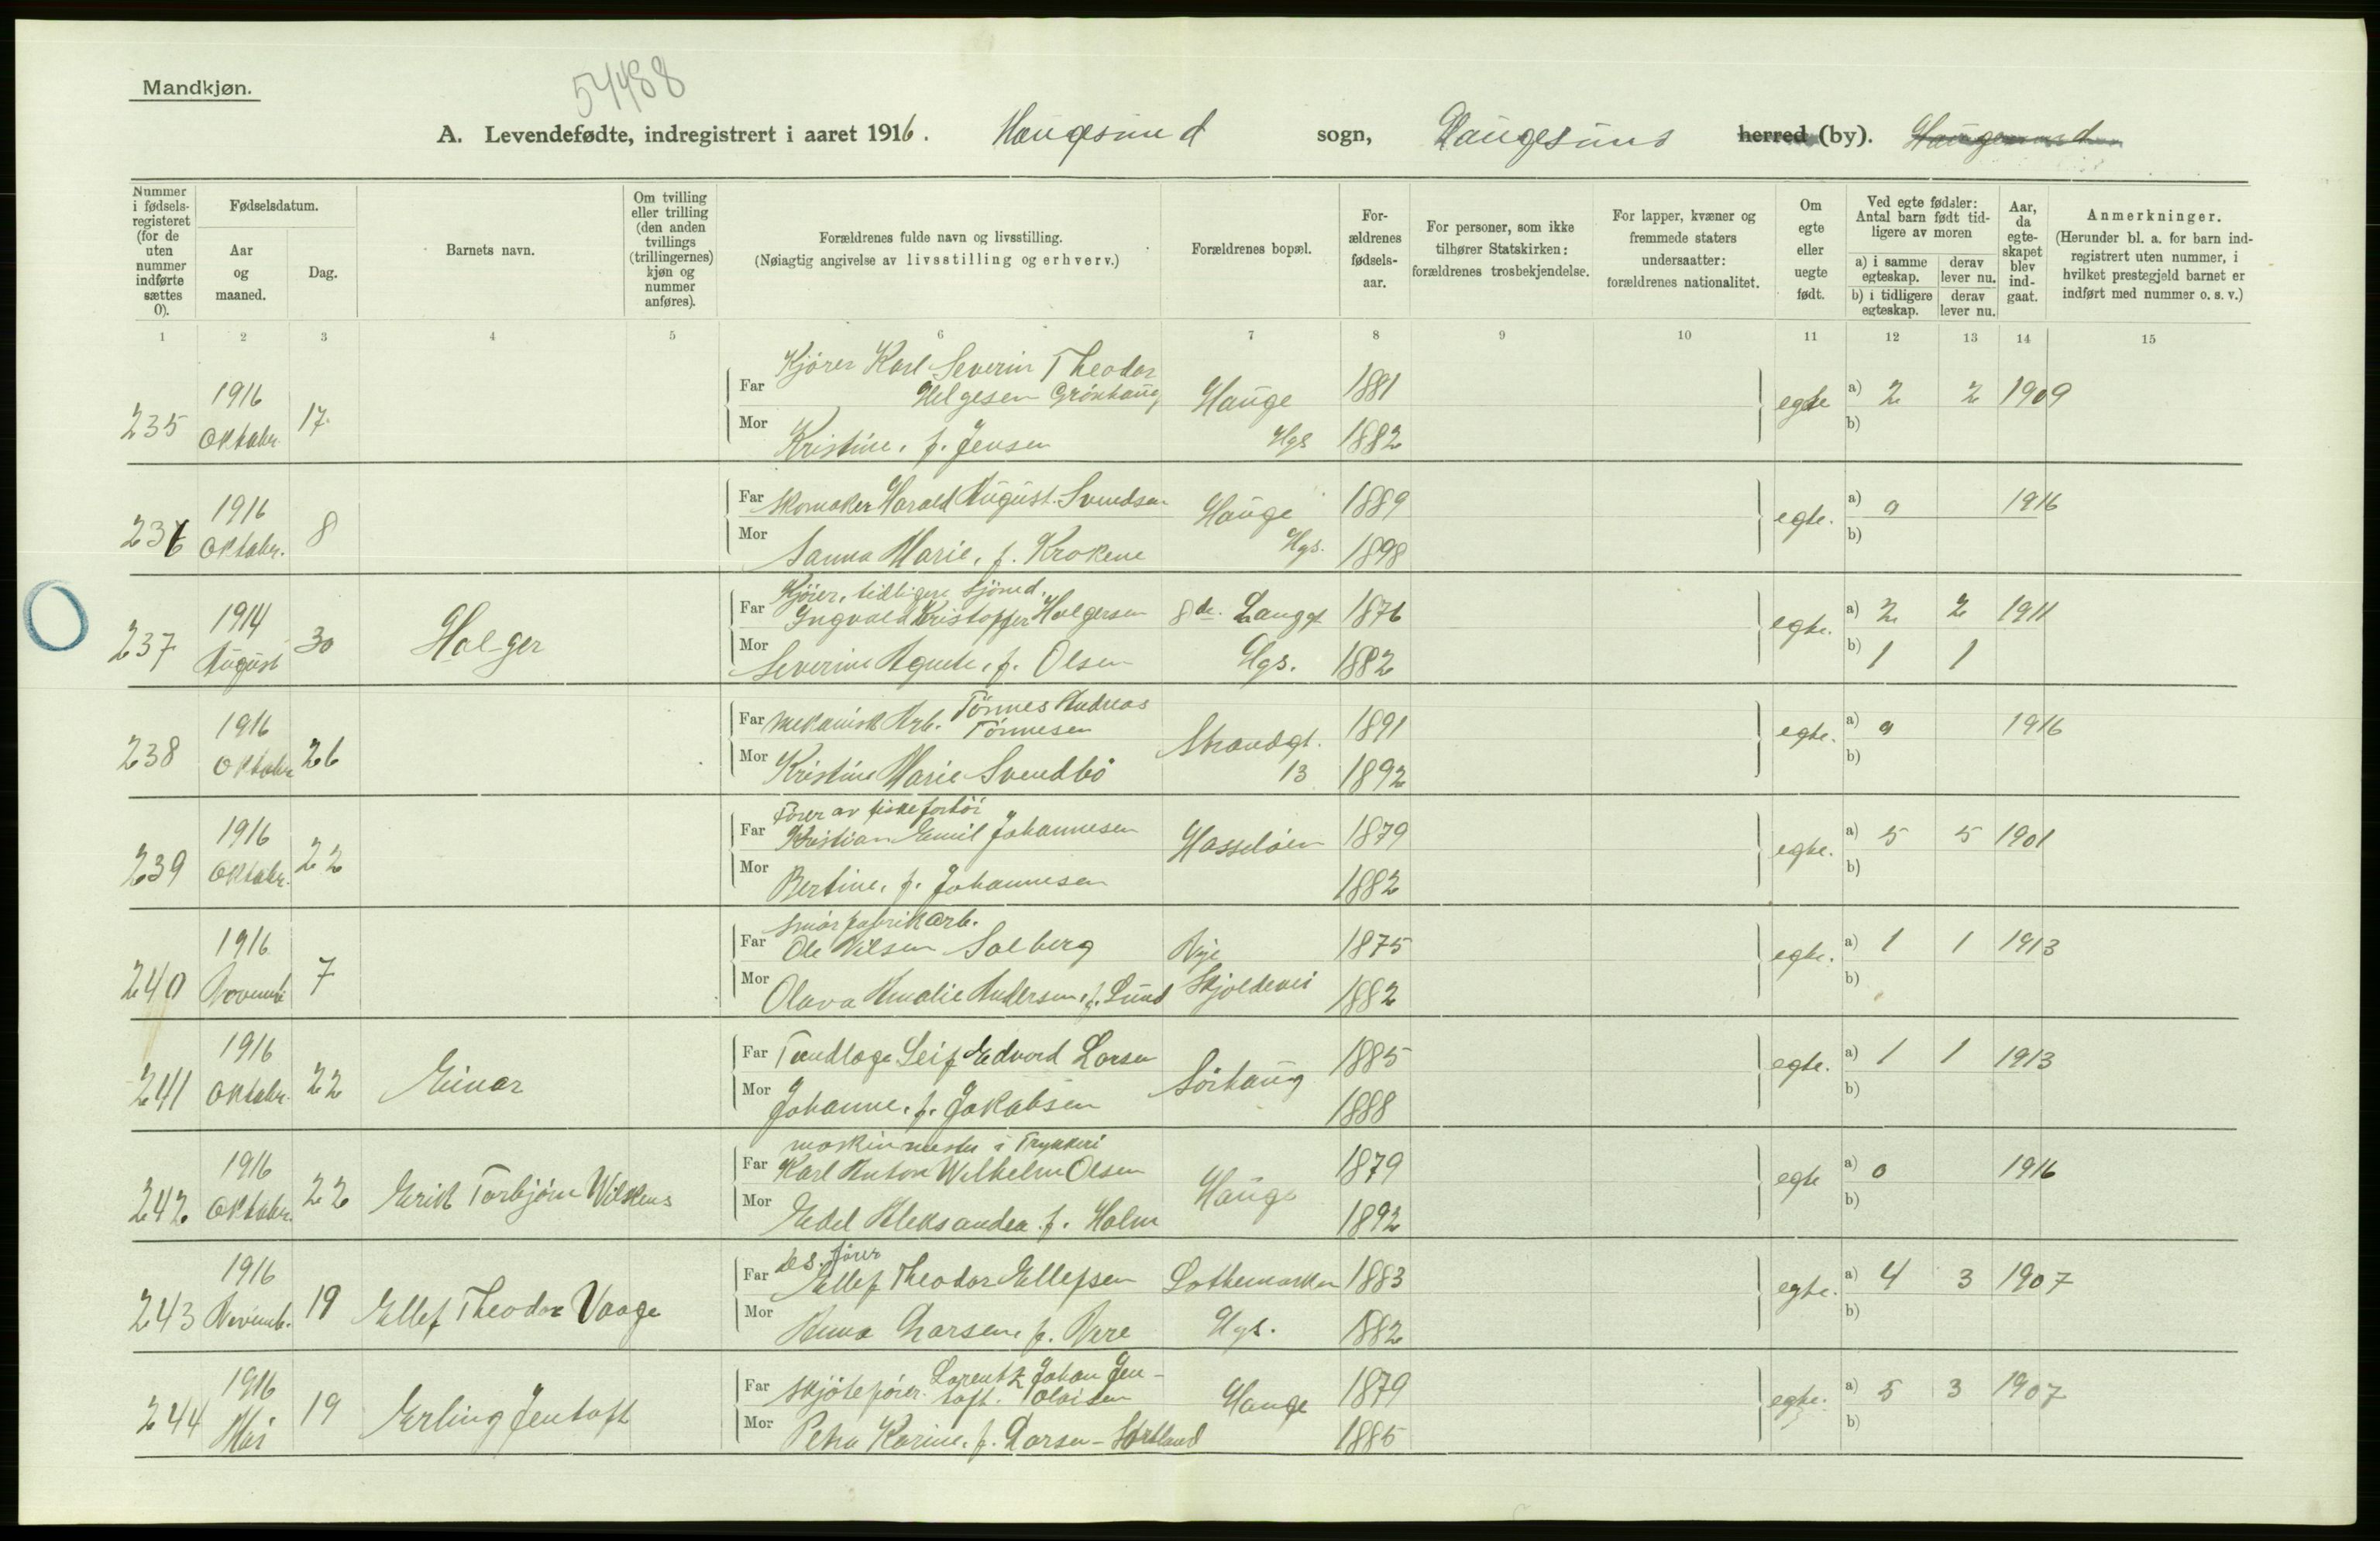 Mandkjøn.
54488
A. Levendefødte, indregistrert i aaret 1916. Haugesund sogn, Haugesund herred (by). Haugesund
Nummer i fødselsregisteret (for de uten nummer indførte sættes 0).
Fødselsdatum.
Aar og maaned.
Dag.
Barnets navn.
Om tvilling eller trilling (den anden tvillings (trillingernes) kjøn og nummer anføres).
Forældrenes fulde navn og livsstilling.
(Nøiagtig angivelse av livsstilling og erhverv.)
Forældrenes bopæl.
For-ældrenes fødsels-aar.
For personer, som ikke tilhører Statskirken: forældrenes trosbekjendelse.
For lapper, kvæner og fremmede staters undersaatter: forældrenes nationalitet.
Om egte eller uegte født.
Ved egte fødsler: Antal barn født tidligere av moren
a) i samme egteskap.
derav lever nu.
b) i tidligere egteskap.
derav lever nu.
Aar, da egteskapet blev indgaat.
Anmerkninger.
(Herunder bl. a. for barn indregistrert uten nummer, i hvilket prestegjeld barnet er indført med nummer o. s. v.)
1 2 3 4 5 6 7 8 9 10 11 12 13 14 15
235 1916 Oktober 17.
Far Kjörer Karl Severin Theodor Helgesen Grönhaug 1881
Mor Kristine, f. Jensen 1882
Hauge Hgs
egte a) 2 2 1909
b)
236 1916 Oktobr. 8
Far Skomaker Harald August Svendsen 1889
Mor Sanna Marie, f. Krokene 1898
Hauge Hgs.
egte. a) 0 1916
b)
237 1914 August 30 Holger
Far Kjörer, tidligere Sjömd. Ingvald Kristoffer Holgersen 1876
Mor Severine Agnete, f. Olsen 1882
8de. Langgt Hgs.
egte. a) 2 2 1911
b) 1 1
238 1916 Oktober 26
Far mekanisk Arb. Tönnes Andreas Tönnesen 1891
Mor Kristine Marie Svendbö 1892
Strandgt. 13
egte. a) 0 1916
b)
239 1916 Oktobr. 22
Far Förer av fiskefortöi Kristian Emil Johannesen 1879
Mor Bertine, f. Johannesen 1882
Hasselöen
egte. a) 5 5 1901
b)
240 1916 Novemb 7
Far Smörfabrikarb. Ole Nilsen Solberg 1875
Mor Olava Amalie Andersen, f. Lund 1882
Nye Skjoldevei
egte. a) 1 1 1913
b)
241 1916 Oktobr. 22 Einar
Far Tandlæge Leif Edvard Larsen 1885
Mor Johanne, f. Jakobsen 1888
Sörhaug
egte. a) 1 1 1913
b)
242 1916 Oktobr. 22 Erik Torbjörn Wilskens
Far maskinmester i Trykkeri Karl Anton Wilhelm Olsen 1879
Mor Edel Aleksandra f. Holm 1892
Hauge
egte a) 0 1916
b)
243 1916 Novemb. 19 Ellef Theodor Vaage
Far förer Ellef Theodor Ellefsen 1883
Mor Anna Larsen, f. 1882
Lothemarken Hgs.
egte. a) 4 3 1907
b)
244 1916 Mai 19 Erling Jentoft
Far Skjöteförer. Lorentz Johan Jentoft. Olaisen 1879
Mor Petra Karine, f. Larsen-Sortland 1885
Hauge
egte. a) 5 3 1907
b)